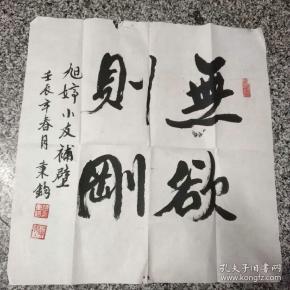 無欲
則剛
旭婷小友補壁
壬辰年春月東鈞
孔夫子旧书网